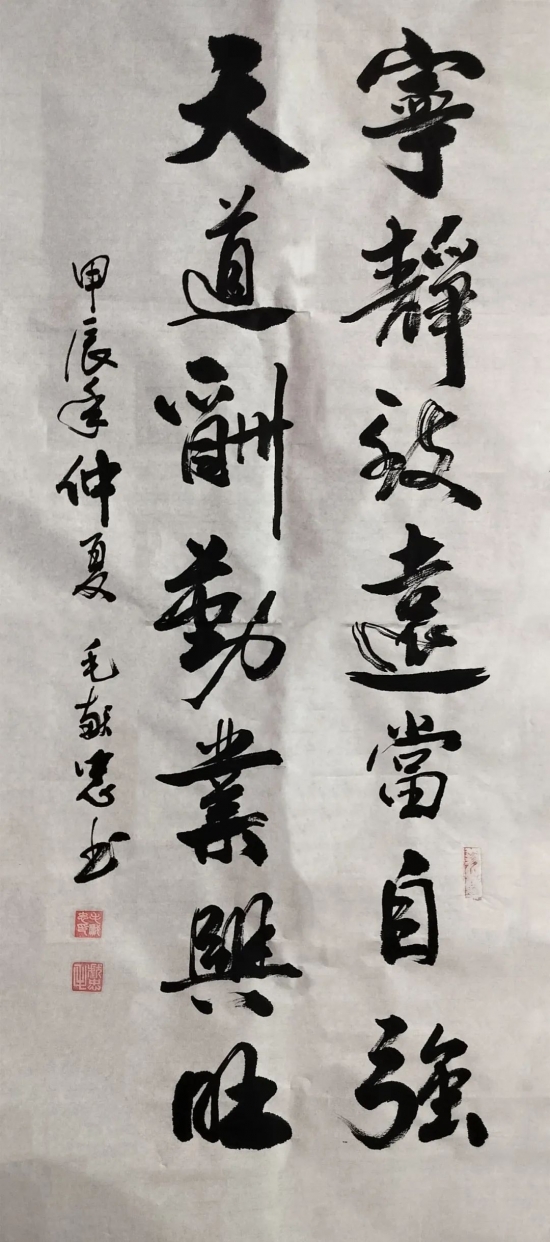 寧靜致遠當自強
天道酬勤業興旺
甲辰年仲夏 毛献忠书